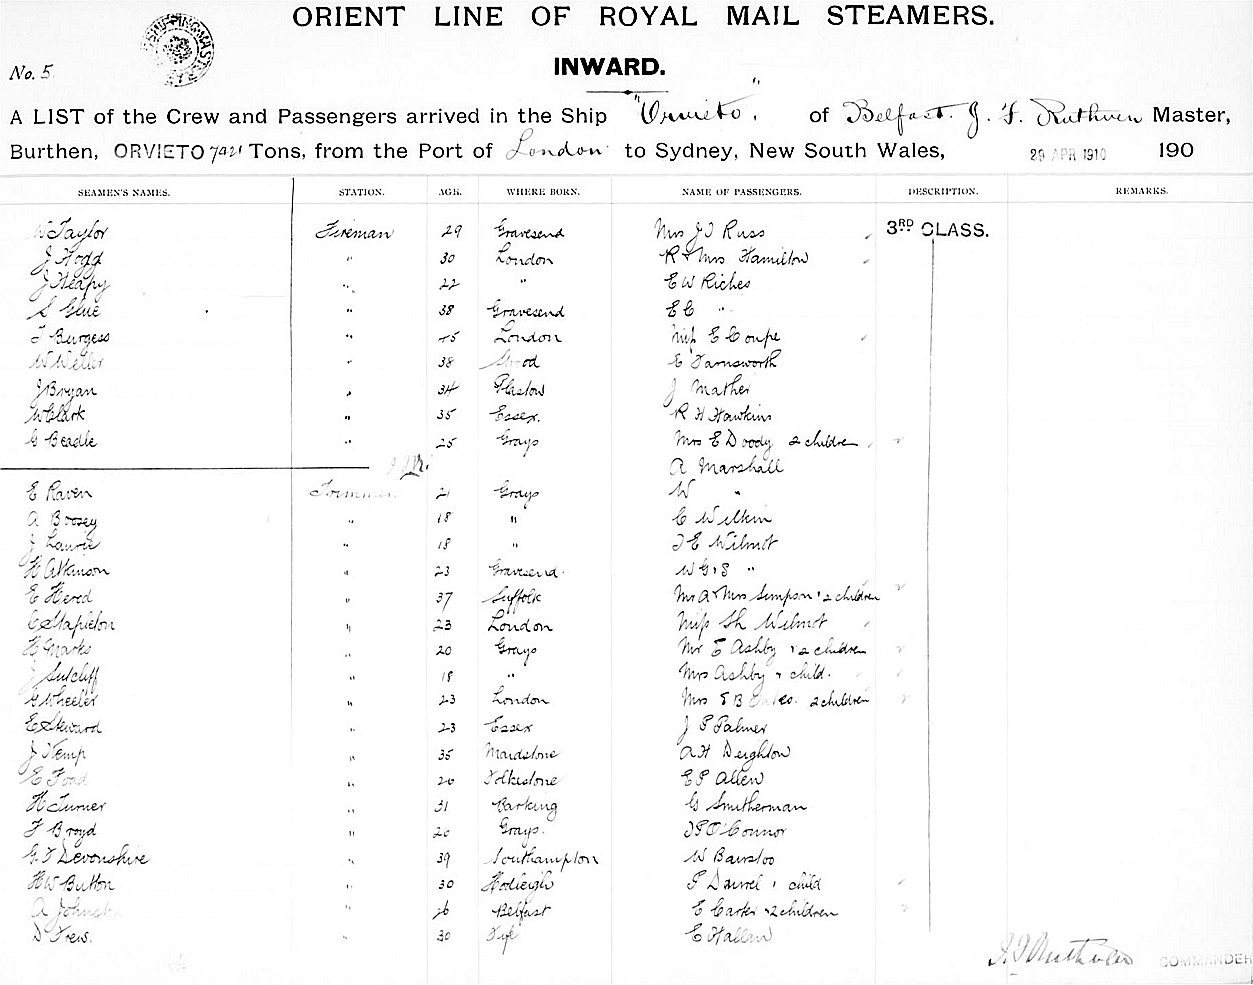 ORIENT LINE OF ROYAL MAIL STEAMERS.
No. 5
INWARD.
A LIST of the Crew and Passengers arrived in the Ship "Orvieto", of Belfast. J. F. Ruthven Master,
Burthen, ORVIETO 7421 Tons, from the Port of London to Sydney, New South Wales, 29 APR 1910 190
SEAMEN'S NAMES. STATION. AGE. WHERE BORN. NAME OF PASSENGERS. DESCRIPTION. REMARKS.
W Taylor Fireman 29 Gravesend Mrs J T Russ 3RD CLASS.
J Hogg " 30 London R & Mrs Hamilton
J Heapy " 22 " E W Riches
S Glue " 38 Gravesend E C "
T Burgess " 45 London Miss E Coupe
W Weller " 38 E Farnsworth
J Bryan " 34 Plaistow J Mather
W Clark " 35 Essex. R H Hawkins
G Beadle " 25 Grays Mrs E Doody 2 children
A Marshall
E Raven 21 Grays W "
A Boosey " 18 " C Wilkin
J Laurie " 18 " T E Wilmot
H Atkinson " 23 Gravesend W G S "
E Herd " 37 Suffolk Mr A & Mrs Simpson & 2 children
C Stapleton " 23 London Miss Wilmot
H Marks " 20 Grays Mr E Ashby & 2 children
J Sutcliff " 18 " Mrs Ashby & child.
G Wheeler " 23 London Mrs E B 2 children
E Steward " 23 Essex J P Palmer
J Kemp " 35 Maidstone A H Deighton
E Foad " 26 Folkestone E P Allen
H Turner " 31 Barking G Smitherman
F Broyd " 20 Grays. J P O'Connor
G T Devonshire " 39 Southampton W Bairstoo
H W Button " 30 Hadleigh P Daniel & child
A " 26 Belfast E Carter & 2 children
D Frew. " 30 Fife E Hallam
J. F. Ruthven COMMANDER